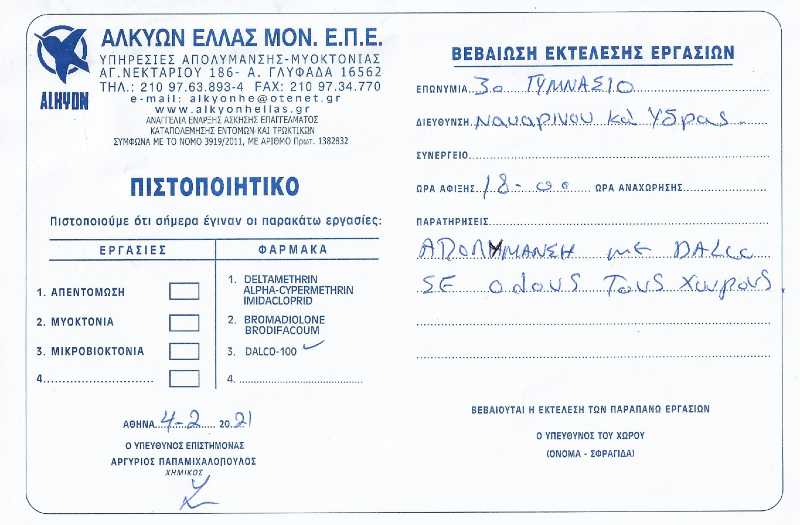 ALKYON
ΑΛΚΥΩΝ ΕΛΛΑΣ ΜΟΝ. Ε.Π.Ε.
ΥΠΗΡΕΣΙΕΣ ΑΠΟΛΥΜΑΝΣΗΣ-ΜΥΟΚΤΟΝΙΑΣ
ΑΓ.ΝΕΚΤΑΡΙΟΥ 186- Α. ΓΛΥΦΑΔΑ 16562
ΤΗΛ.: 210 97.63.893-4 FAX: 210 97.34.770
e-mail: alkyonhe@otenet.gr
www.alkyonhellas.gr
ΑΝΑΓΓΕΛΙΑ ΕΝΑΡΞΗΣ ΑΣΚΗΣΗΣ ΕΠΑΓΓΕΛΜΑΤΟΣ
ΚΑΤΑΠΟΛΕΜΗΣΗΣ ΕΝΤΟΜΩΝ ΚΑΙ ΤΡΩΚΤΙΚΩΝ
ΣΥΜΦΩΝΑ ΜΕ ΤΟ ΝΟΜΟ 3919/2011, ΜΕ ΑΡΙΘΜΟ Πρωτ. 1382832
ΠΙΣΤΟΠΟΙΗΤΙΚΟ
Πιστοποιούμε ότι σήμερα έγιναν οι παρακάτω εργασίες:
ΕΡΓΑΣΙΕΣ ΦΑΡΜΑΚΑ
1. ΑΠΕΝΤΟΜΩΣΗ
2. ΜΥΟΚΤΟΝΙΑ
3. ΜΙΚΡΟΒΙΟΚΤΟΝΙΑ
4.
1. DELTAMETHRIN
ALPHA-CYPERMETHRIN
IMIDACLOPRID
2. BROMADIOLONE
BRODIFACOUM
3. DALCO-100
4.
ΑΘΗΝΑ 4-2 20.21
Ο ΥΠΕΥΘΥΝΟΣ ΕΠΙΣΤΗΜΟΝΑΣ
ΑΡΓΥΡΙΟΣ ΠΑΠΑΜΙΧΑΛΟΠΟΥΛΟΣ
ΧΗΜΙΚΟΣ
ΒΕΒΑΙΩΣΗ ΕΚΤΕΛΕΣΗΣ ΕΡΓΑΣΙΩΝ
ΕΠΩΝΥΜΙΑ 3ο ΓΥΜΝΑΣΙΟ
ΔΙΕΥΘΥΝΣΗ Ναυαρινου και Υδρας
ΣΥΝΕΡΓΕΙΟ
ΩΡΑ ΑΦΙΞΗΣ 18-00 ΩΡΑ ΑΝΑΧΩΡΗΣΗΣ
ΠΑΡΑΤΗΡΗΣΕΙΣ
ΑΠΟΛΥΜΑΝΣΗ με DALCO
ΣΕ ολους Τους χωρους
ΒΕΒΑΙΟΥΤΑΙ Η ΕΚΤΕΛΕΣΗ ΤΩΝ ΠΑΡΑΠΑΝΩ ΕΡΓΑΣΙΩΝ
Ο ΥΠΕΥΘΥΝΟΣ ΤΟΥ ΧΩΡΟΥ
(ΟΝΟΜΑ - ΣΦΡΑΓΙΔΑ)